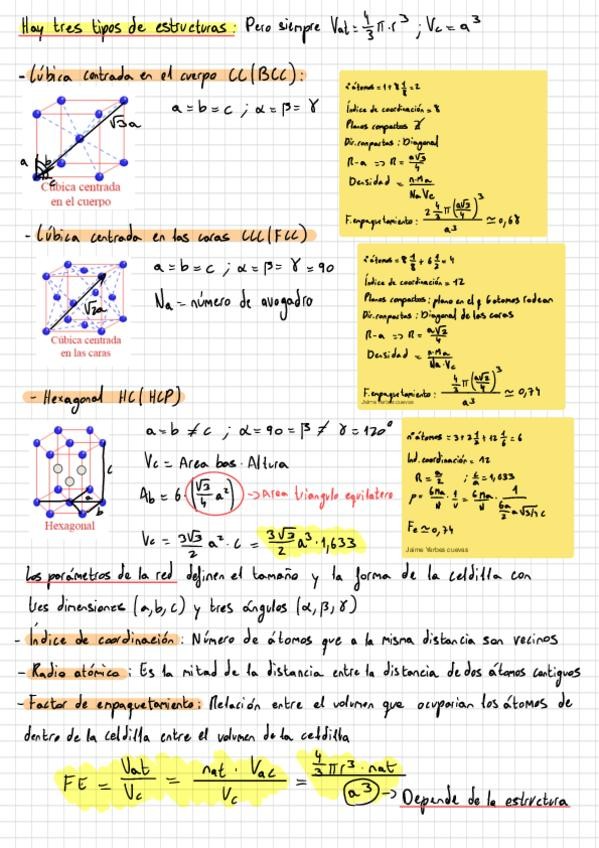 Hay tres tipos de estructuras: Pero siempre Vat = 4/3 π·r³ ; Vc = a³
- Cúbica centrada en el cuerpo CC (BCC):
a = b = c ; α = β = γ
√3a
a
b
c
Cúbica centrada
en el cuerpo
nºátomos = 1 + 8 1/8 = 2
Índice de coordinación = 8
Planos compactos
Dir. compactas : Diagonal
R-a => R = a√3/4
Densidad = n·Ma / Na Vc
F. empaquetamiento: 2 4/3 π (a√3/4)³ / a³ ≃ 0,68
- Cúbica centrada en las caras CCC (FCC)
a = b = c ; α = β = γ = 90
Na = número de avogadro
√2a
Cúbica centrada
en las caras
nºátomos = 8 1/8 + 6 1/2 = 4
Índice de coordinación = 12
Planos compactos: plano en el q 6 atomos rodean
Dir. compactas: Diagonal de las caras
R-a => R = a√2/4
Densidad = n·Ma / Na·Vc
F. empaquetamiento: 4/3 π (a√2/4)³ / a³ ≃ 0,74
Jaime Yerbes cuevas
- Hexagonal HC (HCP)
a = b ≠ c ; α = 90 = β ≠ γ = 120°
Vc = Area bas · Altura
Ab = 6 · (√3/4 a²) -> Area triangulo equilatero
Vc = 3√3/2 a² · c = 3√3/2 a³ · 1,633
c
a
b
Hexagonal
nºátomos = 3 + 2 1/2 + 12 1/6 = 6
Ind. coordinación = 12
R = a/2 ; c/a = 1,633
Fe ≃ 0,74
Jaime Yerbes cuevas
Los parámetros de la red definen el tamaño y la forma de la celdilla con
tres dimensiones (a,b,c) y tres ángulos (α,β,γ)
- Índice de coordinación: Número de átomos que a la misma distancia son vecinos
- Radio atómico : Es la mitad de la distancia entre la distancia de dos átomos contiguos
- Factor de empaquetamiento: Relación entre el volumen que ocuparían los átomos de
dentro de la celdilla entre el volumen de la celdilla
FE = Vat / Vc = nat · Vac / Vc = 4/3 π r³ · nat / a³ -> Depende de la estructura